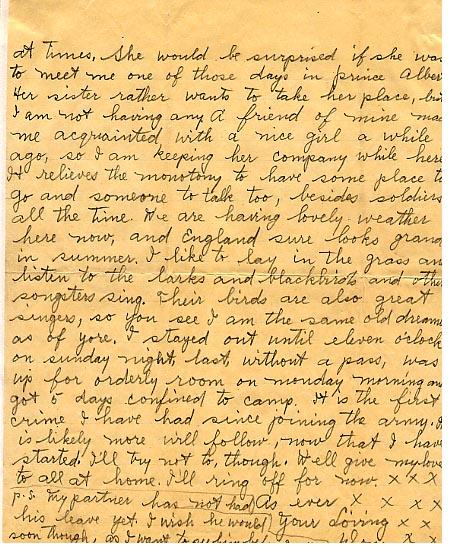 at times. She would be surprised if she was
to meet me one of those days in prince Alber
Her sister rather wants to take her place, but
I am not having any A friend of mine mad
me acquainted with a nice girl a while
ago, so I am keeping her company while here
It relieves the monotony to have some place to
go and someone to talk too, besides soldiers
all the time. We are having lovely weather
here now, and England sure looks grand
in summer. I like to lay in the grass an
listen to the larks and blackbirds and other
songsters sing. Their birds are also great
singers, so you see I am the same old dreame
as of yore. I stayed out until eleven o'clock
on sunday night last, without a pass, was
up for orderly room on monday morning and
got 5 days confined to camp. It is the first
crime I have had since joining the army. It
is likely more will follow, now that I have
started. I'll try not to, though. Well give my love
to all at home. I'll ring off for now. x x x
P.S. My partner has not had As ever x x x x
his leave yet. I wish he would Your Loving x x
soon though, as I want to